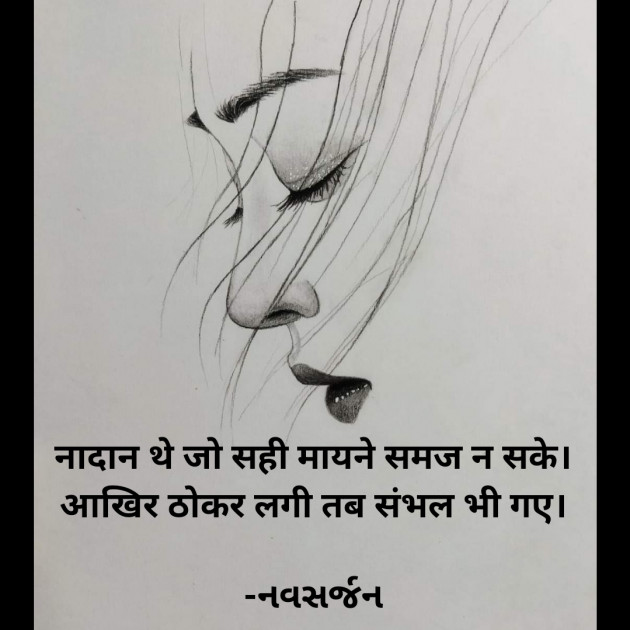 नादान थे जो सही मायने समज न सके।
आखिर ठोकर लगी तब संभल भी गए।
-નવસર્જન